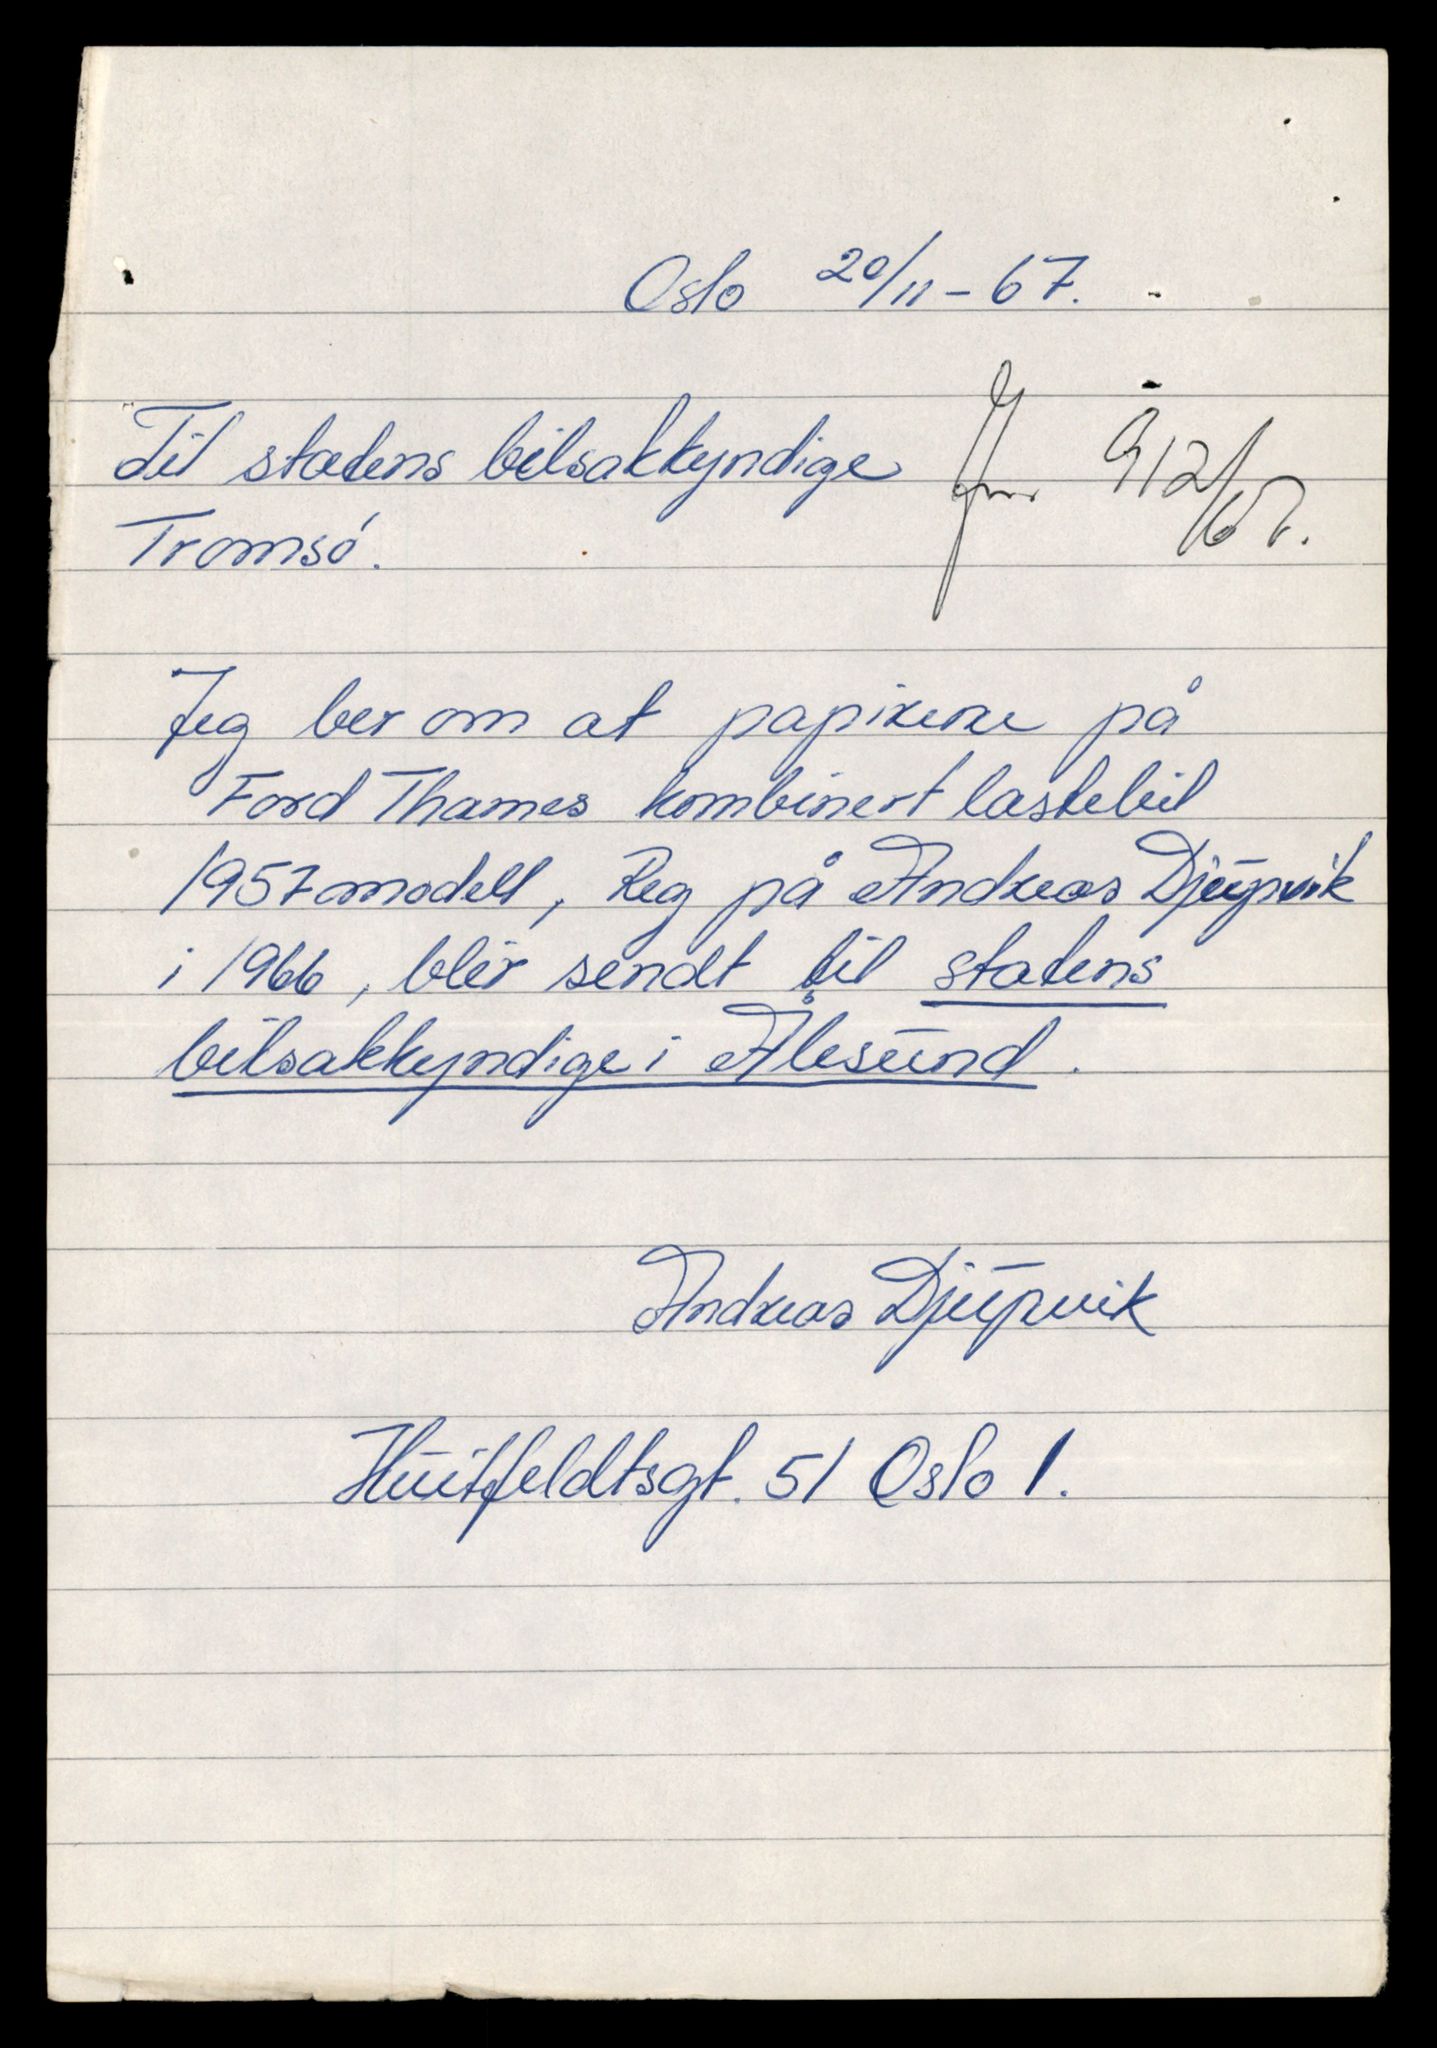 Oslo 20/11-67.
Til statens bilsakkyndige
912/67.
Tromsø.
Jeg ber om at papirene på
Ford Thames kombinert lastebil
1957 modell, Reg på Andreas Djupvik
i 1966, blir sendt til statens
bilsakkyndige i Ålesund.
Andreas Djupvik
Huitfeldtsgt. 51 Oslo 1.